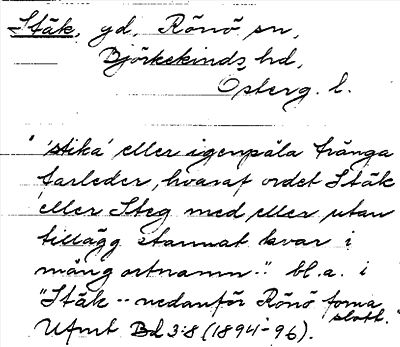 Stäk, yd, Rönö sn,
Björkekinds hd,
Österg. l.
"'stika' eller igenpåla trånga
farleder, hvaraf ordet Stäk
eller Steg med eller utan
tillägg stannat kvar i
mång ortnamn-" bl.a. i
"Stäk -- nedanför Rönö forna
slott."
Ufmt Bd 3:8 (1894-96).